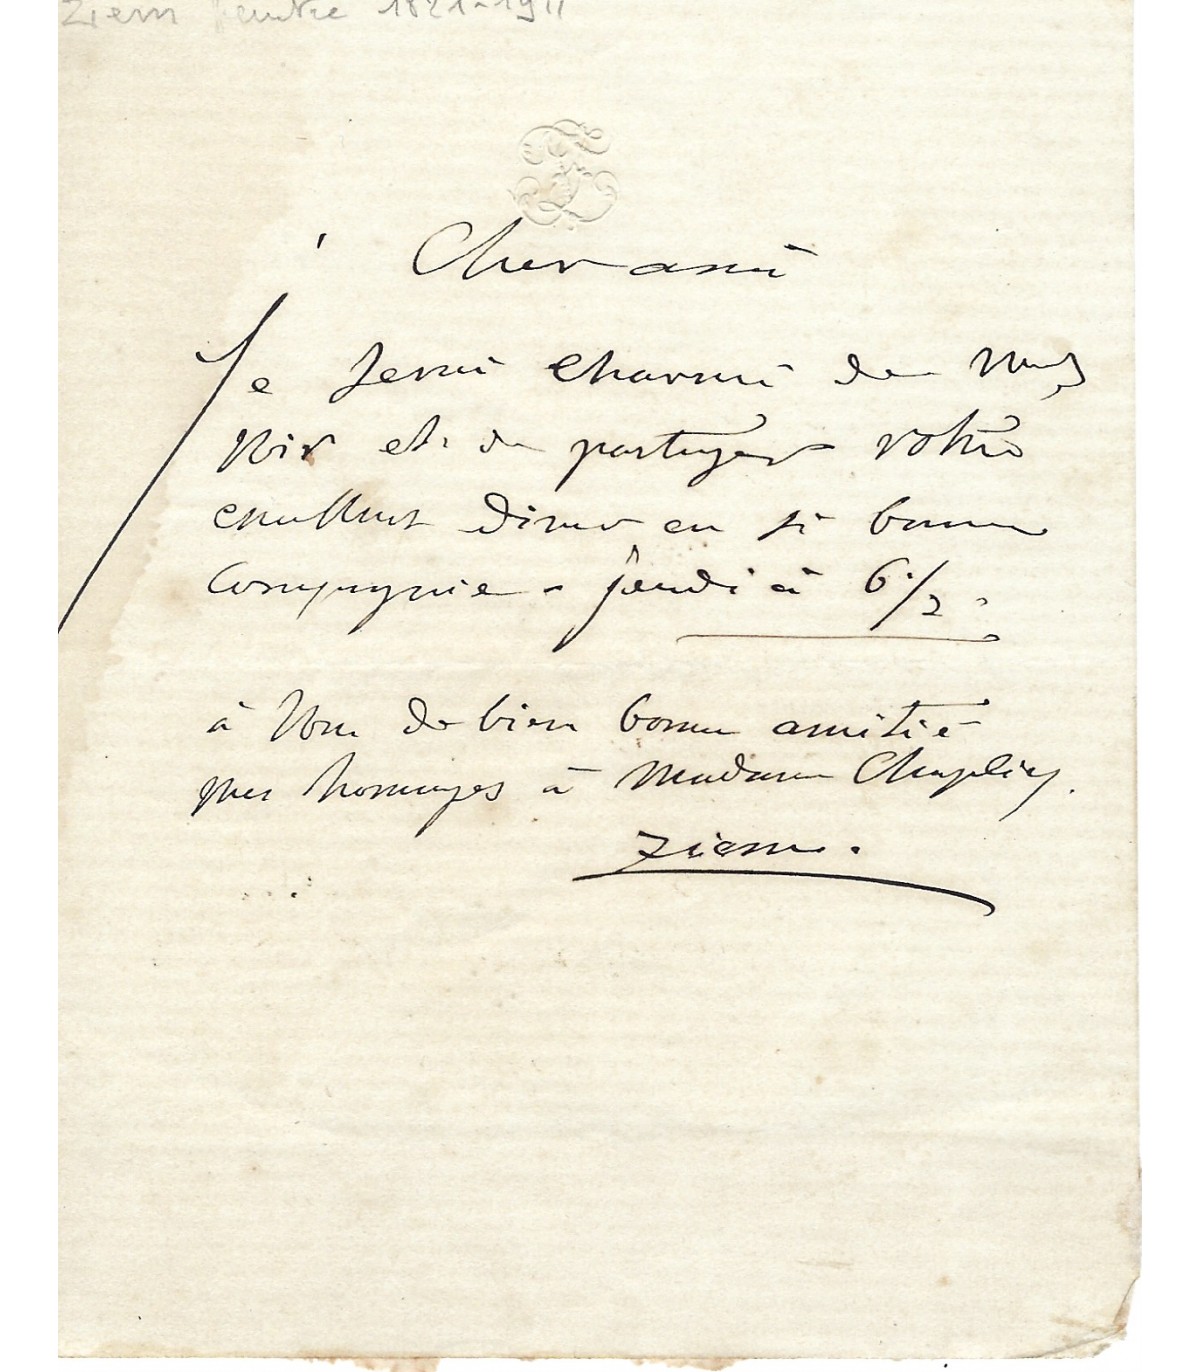 Ziem peintre 1821-1911
Cher ami
Je serai charmé de vous
voir et de partager votre
excellent diner en si bonne
compagnie - jeudi à 6 1/2.
à vous de bien bonne amitié
mes homages à Madame Chaplin.
Ziem.